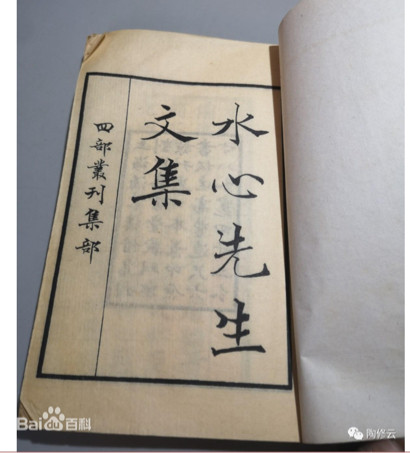 水心先生
文集
四部叢刊集部
Baidu百科
陶修云